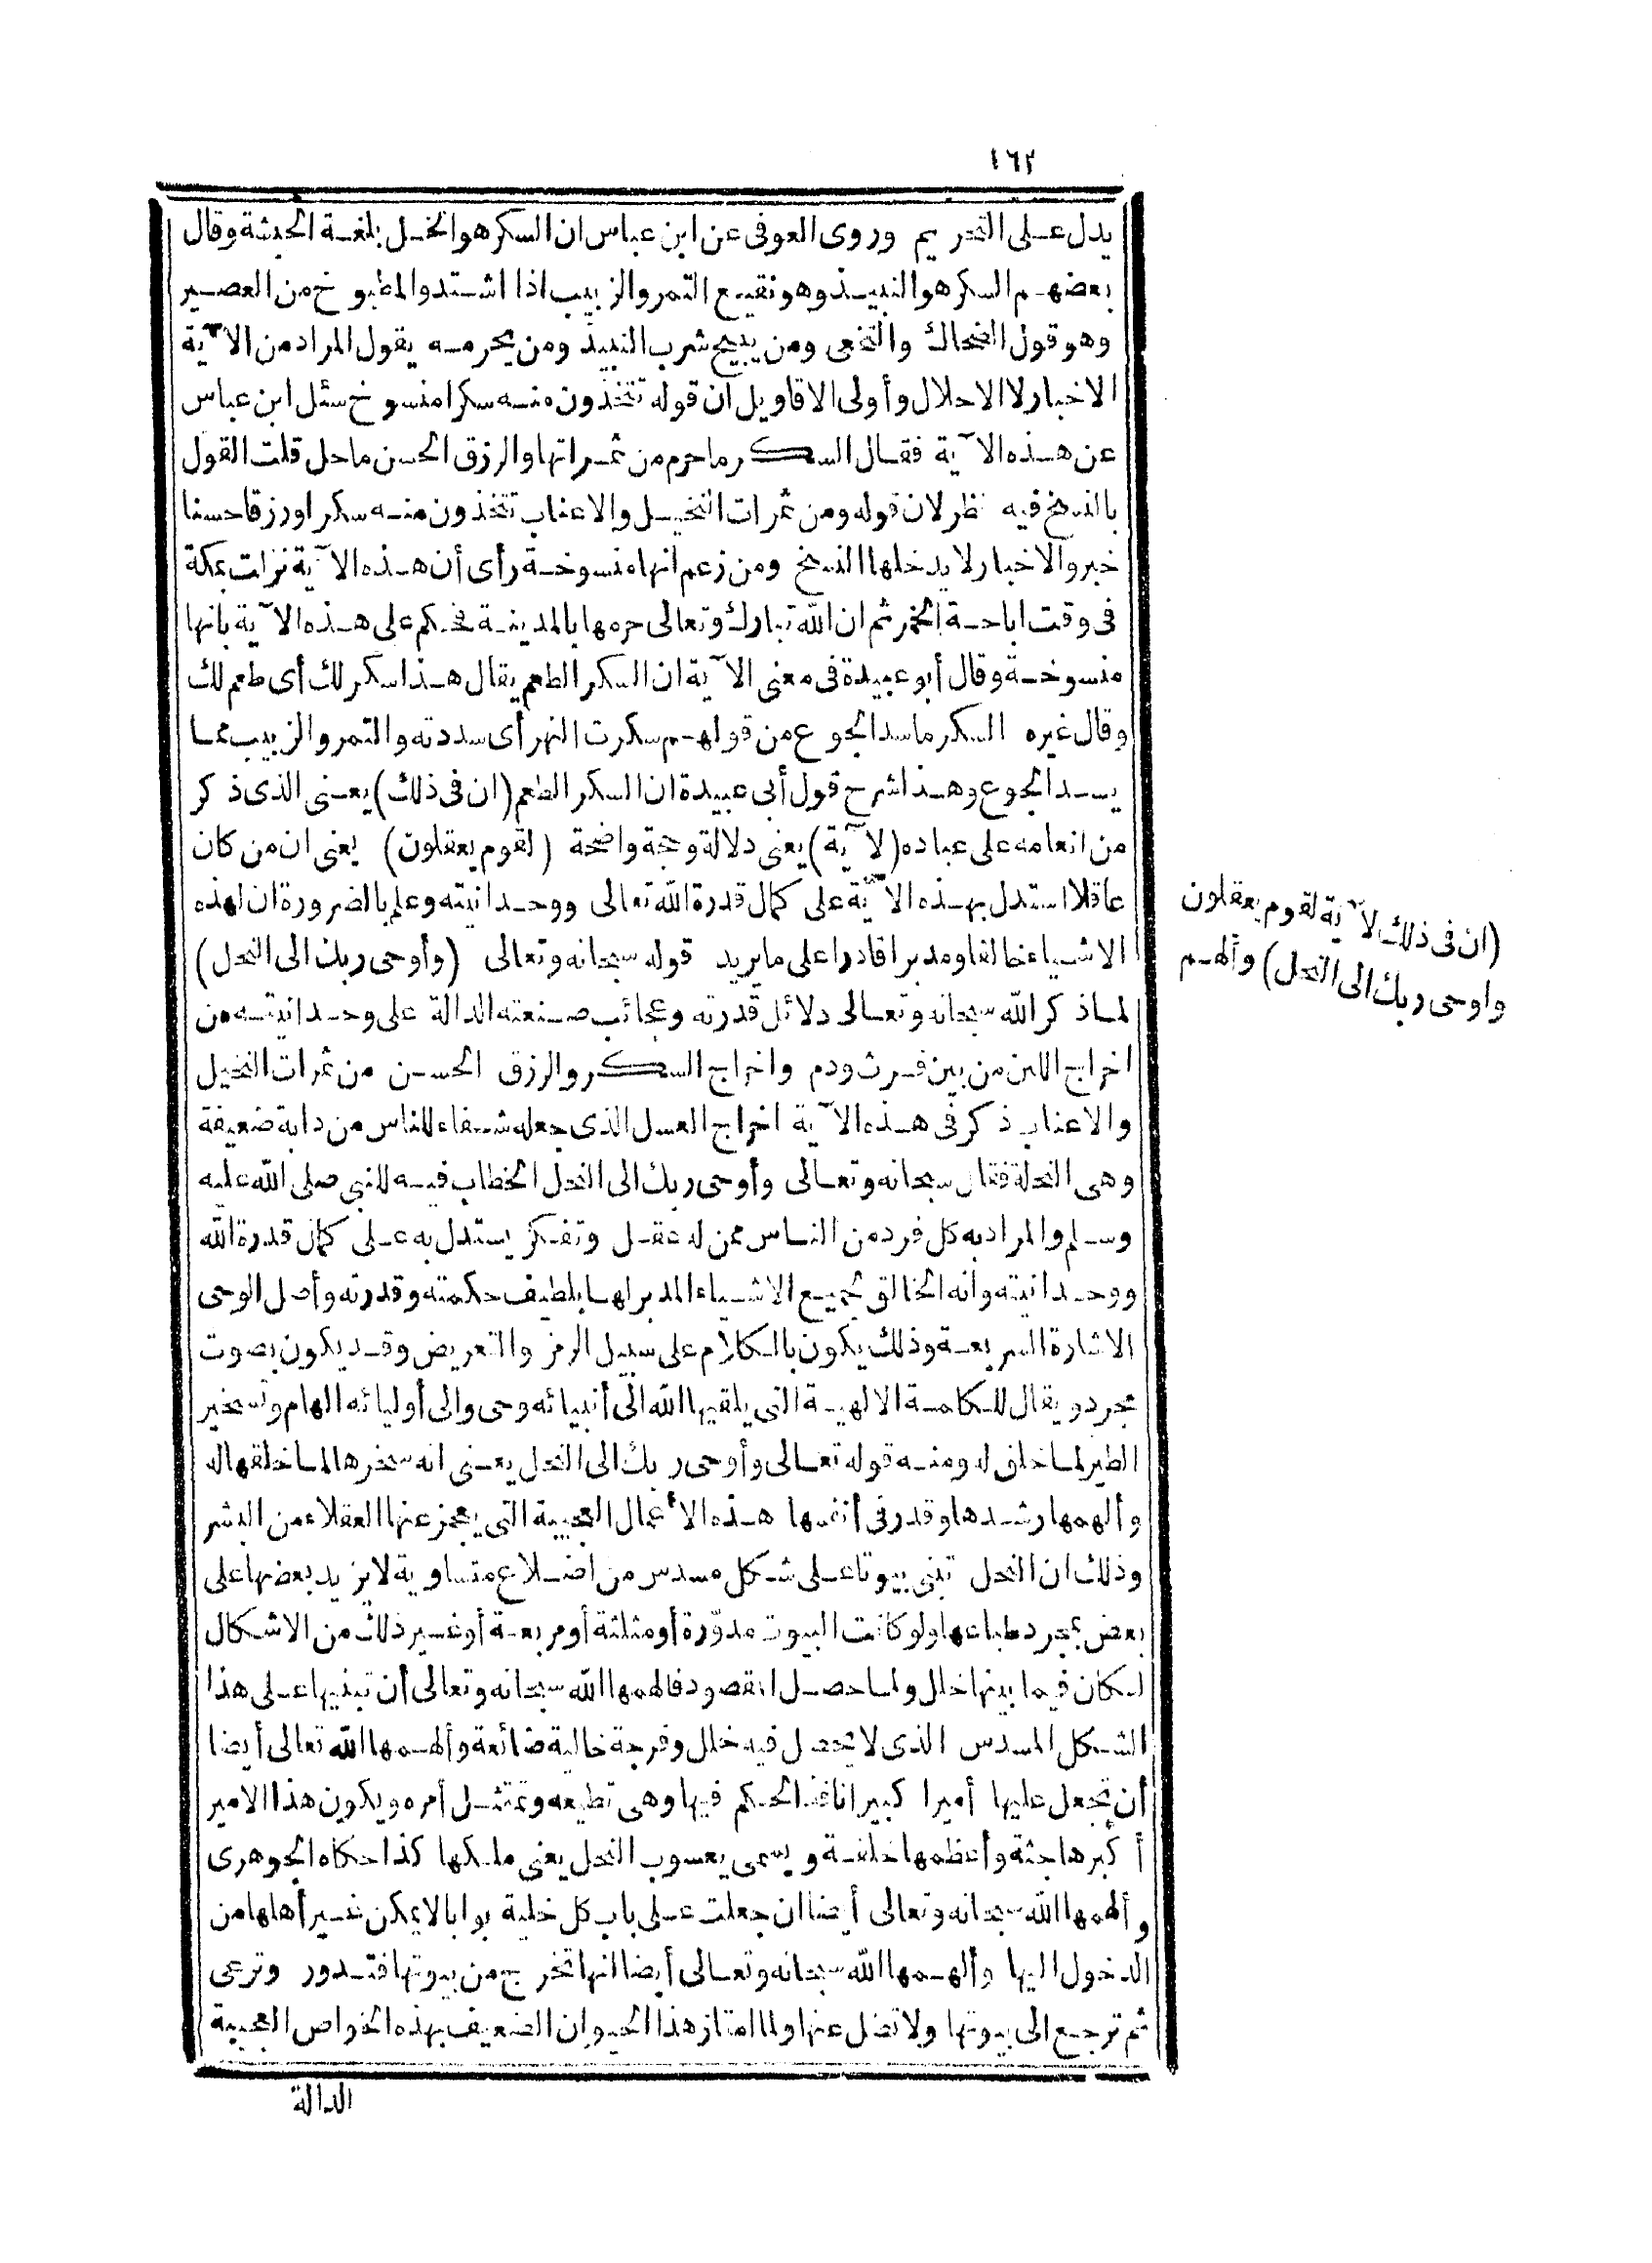 ١٦٢
يدل على التحريم وروى العوفى عن ابن عباس ان السكر هو الخل بلغة الحبشة وقال
بعضهم السكر هو النبيذ وهو نقيع التمر والزبيب اذا اشتد والمطبوخ من العصير
وهو قول الضحاك والنخعى ومن يبيح شرب النبيذ ومن يحرمه يقول المراد من الآية
الاخبار لا الاحلال وأولى الاقاويل ان قوله تتخذون منه سكرا منسوخ سئل ابن عباس
عن هذه الآية فقال السكر ماحرم من ثمراتها والرزق الحسن ماحل قلت القول
بالنسخ فيه نظر لان قوله ومن ثمرات النخيل والاعناب تتخذون منه سكرا ورزقا حسنا
خبر والاخبار لا يدخلها النسخ ومن زعم انها منسوخة رأى أن هذه الآية نزلت بمكة
فى وقت اباحة الخمر ثم ان الله تبارك وتعالى حرمها بالمدينة فحكم على هذه الآية بانها
منسوخة وقال أبو عبيدة فى معنى الآية ان السكر الطعم يقال هذا سكر لك أى طعم لك
وقال غيره السكر ما سد الجوع من قولهم سكرت النهر أى سددته والتمر والزبيب مما
يسد الجوع وهذا شرح قول أبى عبيدة ان السكر الطعم (ان فى ذلك) يعنى الذى ذكر
من انعامه على عباده (لآية) يعنى دلالة وحجة واضحة (لقوم يعقلون) يعنى ان من كان
عاقلا استدل بهذه الآية على كمال قدرة الله تعالى ووحدانيته وعلم بالضرورة ان لهذه
الاشياء خالقا ومدبرا قادرا على ما يريد قوله سبحانه وتعالى (وأوحى ربك الى النحل)
لما ذكر الله سبحانه وتعالى دلائل قدرته وعجائب صنعته الدالة على وحدانيته من
اخراج اللبن من بين فرث ودم واخراج السكر والرزق الحسن من ثمرات النخيل
والاعناب ذكر فى هذه الآية اخراج العسل الذى جعله شفاء للناس من دابة ضعيفة
وهى النحلة فقال سبحانه وتعالى وأوحى ربك الى النحل الخطاب فيه للنبى صلى الله عليه
وسلم والمراد به كل فرد من الناس ممن له عقل وتفكر يستدل به على كمال قدرة الله
ووحدانيته وانه الخالق لجميع الاشياء المدبر لها بلطيف حكمته وقدرته وأصل الوحى
الاشارة السريعة وذلك يكون بالكلام على سبيل الرمز والتعريض وقد يكون بصوت
مجرد ويقال للكلمة الالهية التى يلقيها الله الى أنبيائه وحى والى أوليائه الهام وتسخير
الطير لما خلق له ومنه قوله تعالى وأوحى ربك الى النحل يعنى انه سخرها لما خلقها له
وألهمها رشدها وقدر فى أنفسها هذه الأعمال العجيبة التى يعجز عنها العقلاء من البشر
وذلك ان النحل تبنى بيوتا على شكل مسدس من اضلاع متساوية لا يزيد بعضها على
بعض بمجرد طباعها ولو كانت البيوت مدوّرة أو مثلثة أو مربعة أو غير ذلك من الاشكال
لكان فيما بينها خلل ولما حصل المقصود فالهمها الله سبحانه وتعالى أن تبنيها على هذا
الشكل المسدس الذى لا يحصل فيه خلل وفرجة خالية ضائعة وألهمها الله تعالى أيضا
أن تجعل عليها أميرا كبيرا نافذ الحكم فيها وهى تطيعه وتمتثل أمره ويكون هذا الامير
أكبرها جثة وأعظمها خلقة ويسمى يعسوب النحل يعنى ملكها كذا حكاه الجوهرى
وألهمها الله سبحانه وتعالى أيضا ان جعلت على باب كل خلية بوابا لا يمكن غير أهلها من
الدخول اليها وألهمها الله سبحانه وتعالى أيضا انها تخرج من بيوتها فتدور وترعى
ثم ترجع الى بيوتها ولا تضل عنها ولما امتاز هذا الحيوان الضعيف بهذه الخواص العجيبة
الدالة
(ان فى ذلك لآية لقوم يعقلون
واوحى ربك الى النحل) وألهم